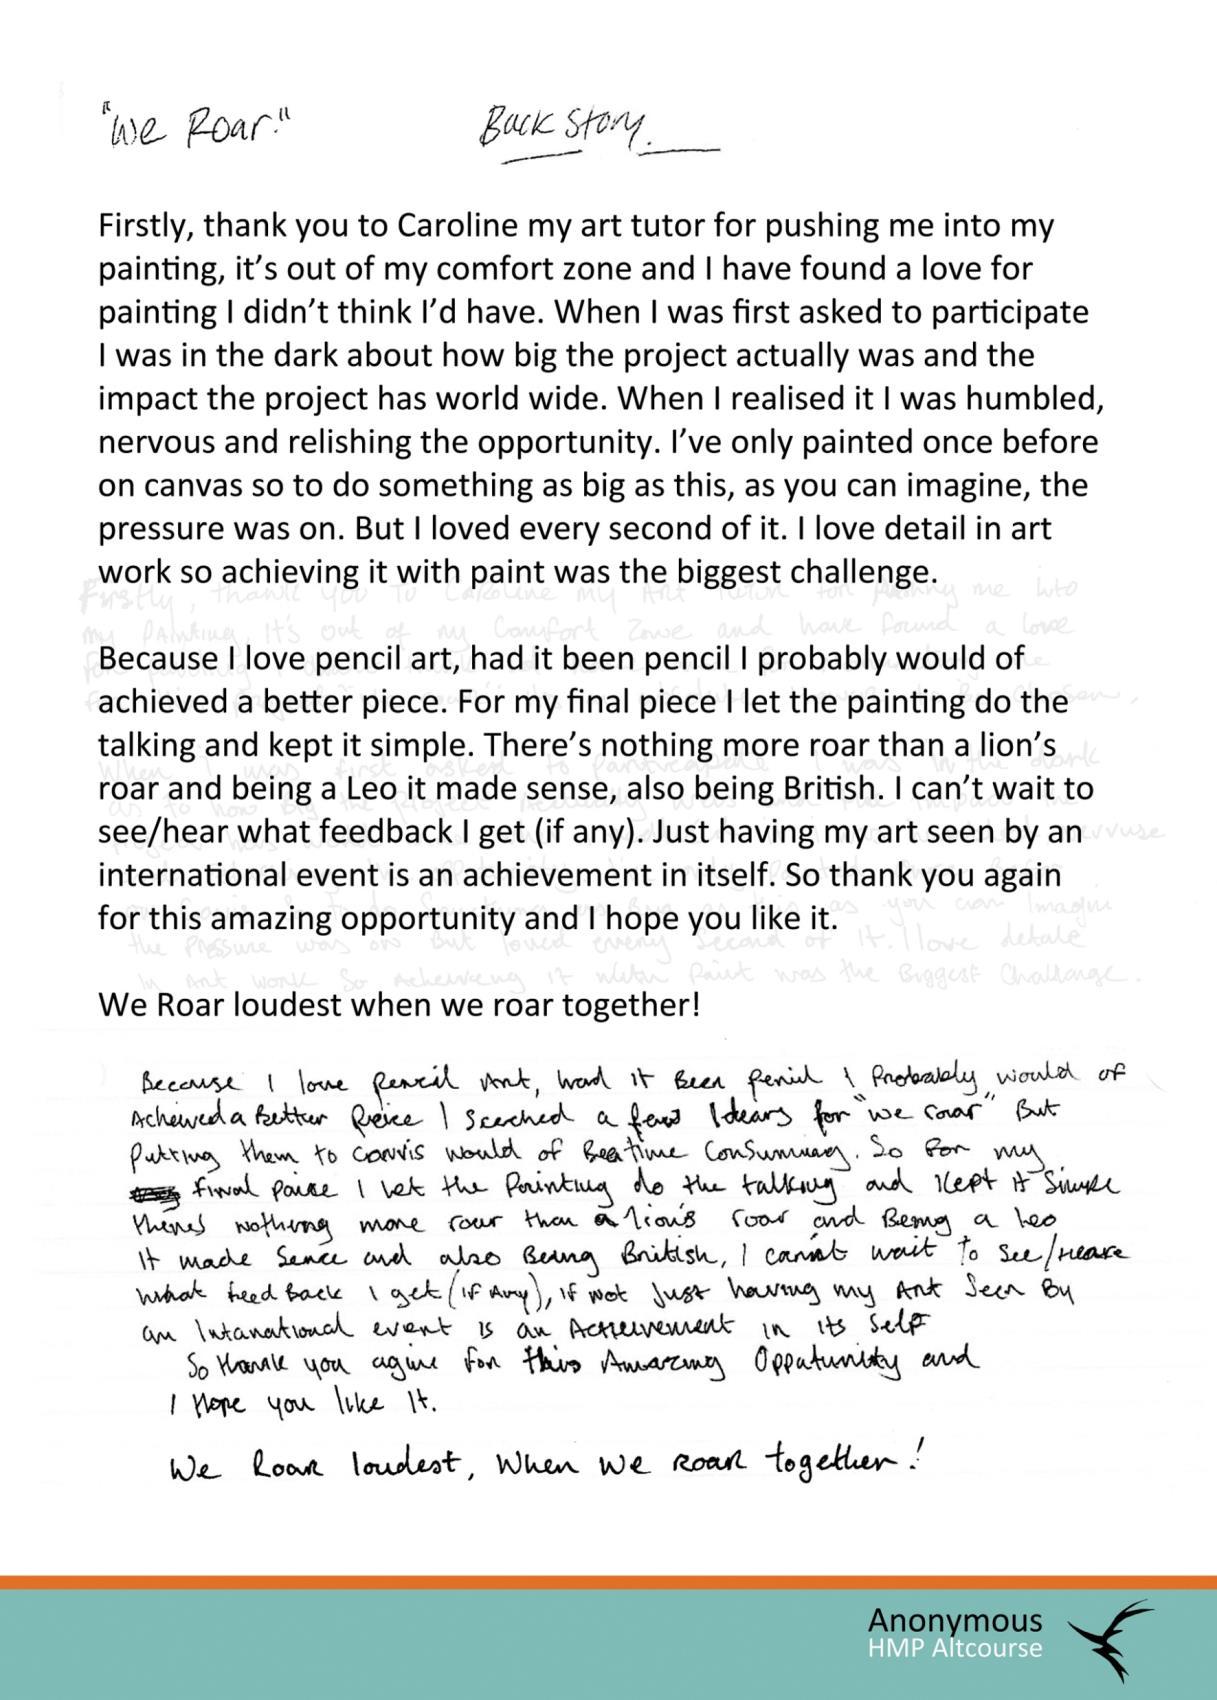 "We Roar." Back Story.
Firstly, thank you to Caroline my art tutor for pushing me into my
painting, it's out of my comfort zone and I have found a love for
painting I didn't think I'd have. When I was first asked to participate
I was in the dark about how big the project actually was and the
impact the project has world wide. When I realised it I was humbled,
nervous and relishing the opportunity. I've only painted once before
on canvas so to do something as big as this, as you can imagine, the
pressure was on. But I loved every second of it. I love detail in art
work so achieving it with paint was the biggest challenge.
Firstly, thank you to Caroline my Art Tutor for me into
my PAinting, It's out of my Comfort Zone and have found a love
Because I love pencil art, had it been pencil I probably would of
achieved a better piece. For my final piece I let the painting do the
talking and kept it simple. There's nothing more roar than a lion's
roar and being a Leo it made sense, also being British. I can't wait to
see/hear what feedback I get (if any). Just having my art seen by an
international event is an achievement in itself. So thank you again
for this amazing opportunity and I hope you like it.
the Pressure was on But loved every Second of It. I love detale
In Art work So Acheiveing it with Paint was the Biggest Challenge.
We Roar loudest when we roar together!
Because I love Pencil Art, had It Been Pencil I Probably would of
Acheived a Better Peice I Scetched a few Idears for "we roar" But
Putting them to canvis would of Bea time Consuming. So For my
final paice I let the Painting do the talking and Kept it Simple
theres nothing more roar than a lions roar and Being a Leo
It made Sence and also Being British, I cannot wait to See/Heare
what feed Back I get (if Any), if not Just having my Art Seen By
an Intanational event is an Acheivement in its Self
So thank you agine for this Amazing Oppatunity and
I Hope you like It.
We Roar loudest, When we roar together!
Anonymous
HMP Altcourse